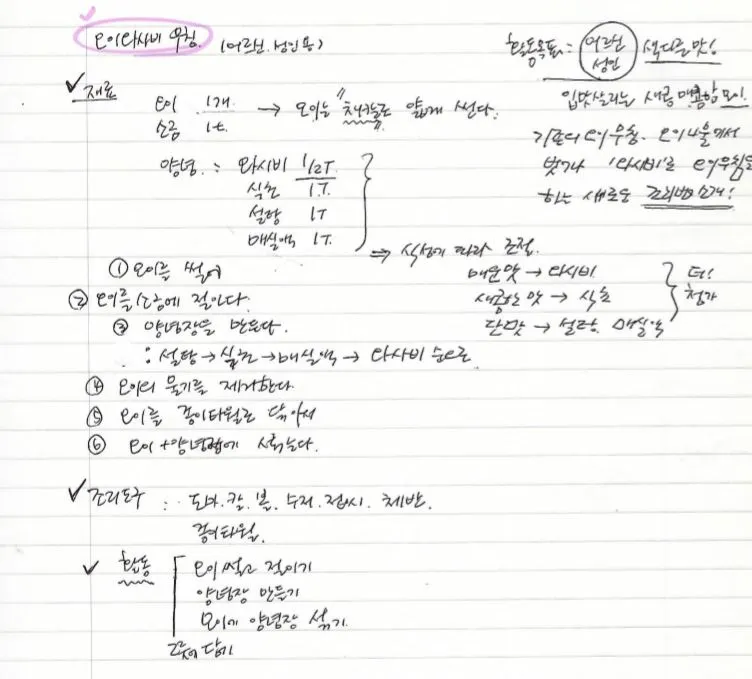 오이와사비 무침. (어르신. 성인용)
활동목표: 어르신 성인 색다른 맛!
입맛살리는 새콤 매콤함 오이.
기존의 오이무침. 오이나물에서
벗어나 '와사비'로 오이무침을
하는 새로운 조리법 소개!
✓ 재료
오이 1개 → 오이는 "채칼로" 얇게 썬다.
소금 1t.
양념 : 와사비 1/2T
식초 1T.
설탕 1T
매실액 1T.
⇒ 식성에 따라 조절.
매운맛 → 와사비
새콤한 맛 → 식초
단맛 → 설탕. 매실액
더! 첨가
① 오이를 썰어
② 오이를 소금에 절인다.
③ 양념장을 만든다.
: 설탕 → 식초 → 매실액 → 와사비 순으로
④ 오이의 물기를 제거한다.
⑤ 오이를 종이타월로 닦아서
⑥ 오이+양념장에 섞는다.
✓ 조리도구 : 도마. 칼. 볼. 수저. 접시. 체반.
종이타월.
✓ 활동
오이 썰고 절이기
양념장 만들기
오이에 양념장 섞기.
담기